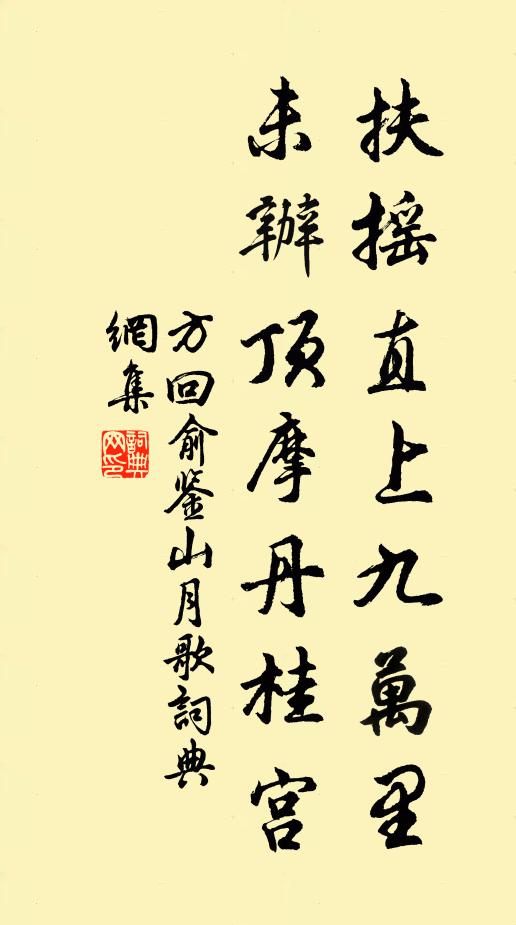 扶摇直上九萬里
未辦頂摩丹桂宫
方回俞鉴山月歌詞典
網集
詞典網印